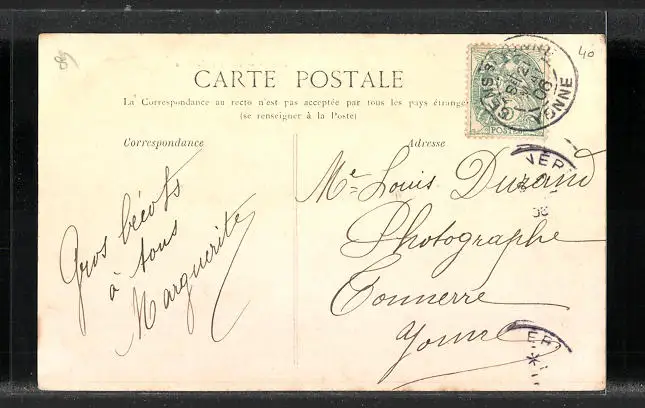 40
CARTE POSTALE
La Correspondance au recto n'est pas acceptée par tous les pays étrangers
(se renseigner à la Poste)
Correspondance
Adresse
Gros bécots
à tous
Marguerite
Me Louis Durand
Photographe
Tonnerre
Yonne
POSTES
SENS
YONNE
08